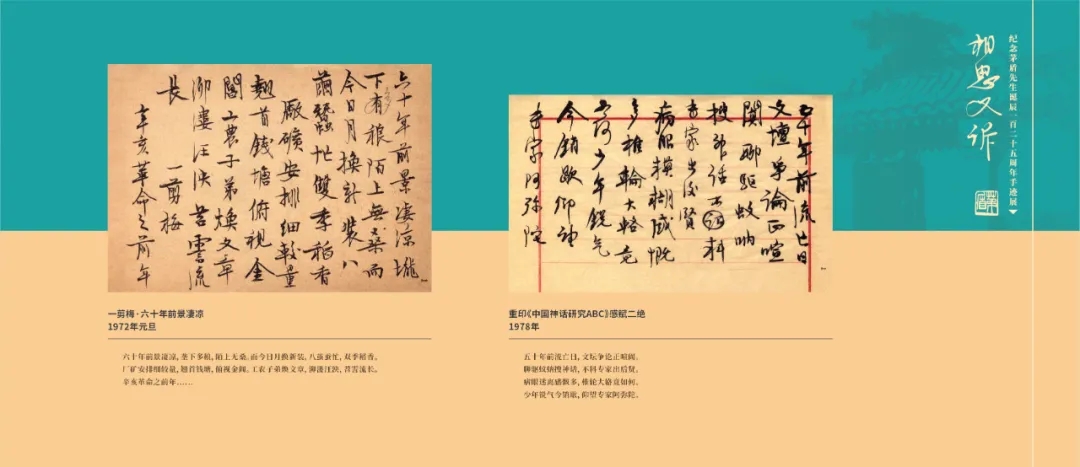 相思又訴
纪念茅盾先生诞辰一百二十五周年手迹展
六十年前景凄凉壠
下有狼陌上無桑而
今日月換新裝八
繭蠶忙雙季稻香
廠礦安排細較量
翹首錢塘俯視金
閶工農子弟煥文章
汪泱苕霅流
長
一剪梅
辛亥革命之前年
五十年前流亡日
文壇爭論正喧
闐聊驅蚊蚋
搜神話不料
專家出後賢
病眼模糊感慨
多椎輪大輅竟
如何少年銳气
今銷歇仰
專家阿弥陀
一剪梅·六十年前景凄凉
1972年元旦
六十年前景凄凉, 垄下多狼, 陌上无桑。而今日月换新装。八茧蚕忙, 双季稻香。
厂矿安排细较量, 翘首钱塘, 俯视金阊。工农子弟焕文章, 汪泱, 苕霅流长。
辛亥革命之前年……
重印《中国神话研究ABC》感赋二绝
1978年
五十年前流亡日, 文坛争论正喧阗。
聊驱蚊蚋搜神话, 不料专家出后贤。
病眼迷离感慨多, 椎轮大辂竟如何。
少年锐气今销歇, 仰望专家阿弥陀。